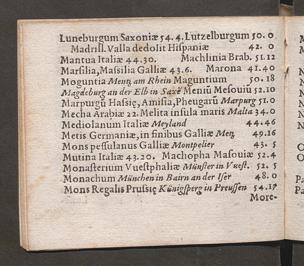 Luneburgum Saxoniæ 54.4. Lutzelburgum 50.0
Madrisl. Valladedolit Hispaniæ 42.0
Mantua Italiæ 44.30. Machlinia Brab. 51.12
Marsilia, Massilia Galliæ 43.6. Marona 41.40
Moguntia Mentz am Rhein Maguntium 50.18
Magdeburg an der Elb in Saxē Meniū Mesouiū 52.10
Marpurgū Hassię, Amisia, Pheugarū Marpurg 51.0
Mecha Arabiæ 22. Melita insula maris Malta 34.0
Mediolanum Italiæ Meyland 44.46
Metis Germaniæ, in finibus Galliæ Metz 49.16
Mons pessulanus Galliæ Montpelier 43.5
Mutina Italiæ 43.20. Machopha Masouiæ 52.4
Monasterium Vuestphaliæ Münster in Vuest. 52.5
Monachum München in Bairn an der Iser 48.0
Mons Regalis Prussię Königsperg in Preussen 54.17
More-